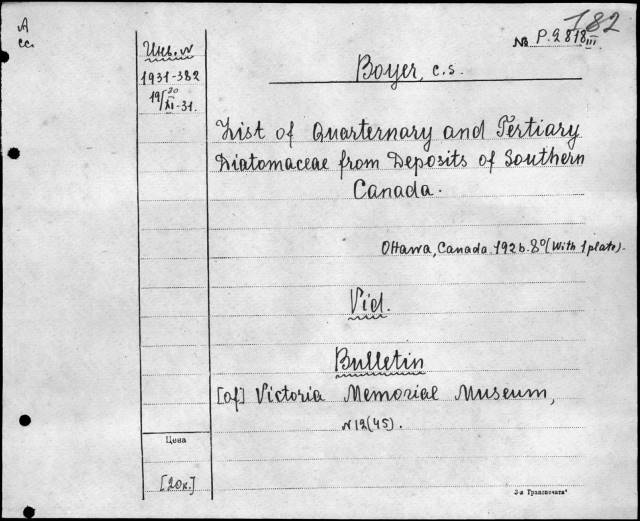 A
cc.
182
№ P.2818 III
Инв. №
1931-382
19/XI-31.
20
Boyer, C.S.
List of Quarternary and Tertiary
Diatomaceae from Deposits of Southern
Canada.
Ottawa, Canada. 1926. 8° (With 1 plate).
Vid.
Bulletin
[of] Victoria Memorial Museum,
N 12 (45).
Цена
[20к.]
3-я Транспечать